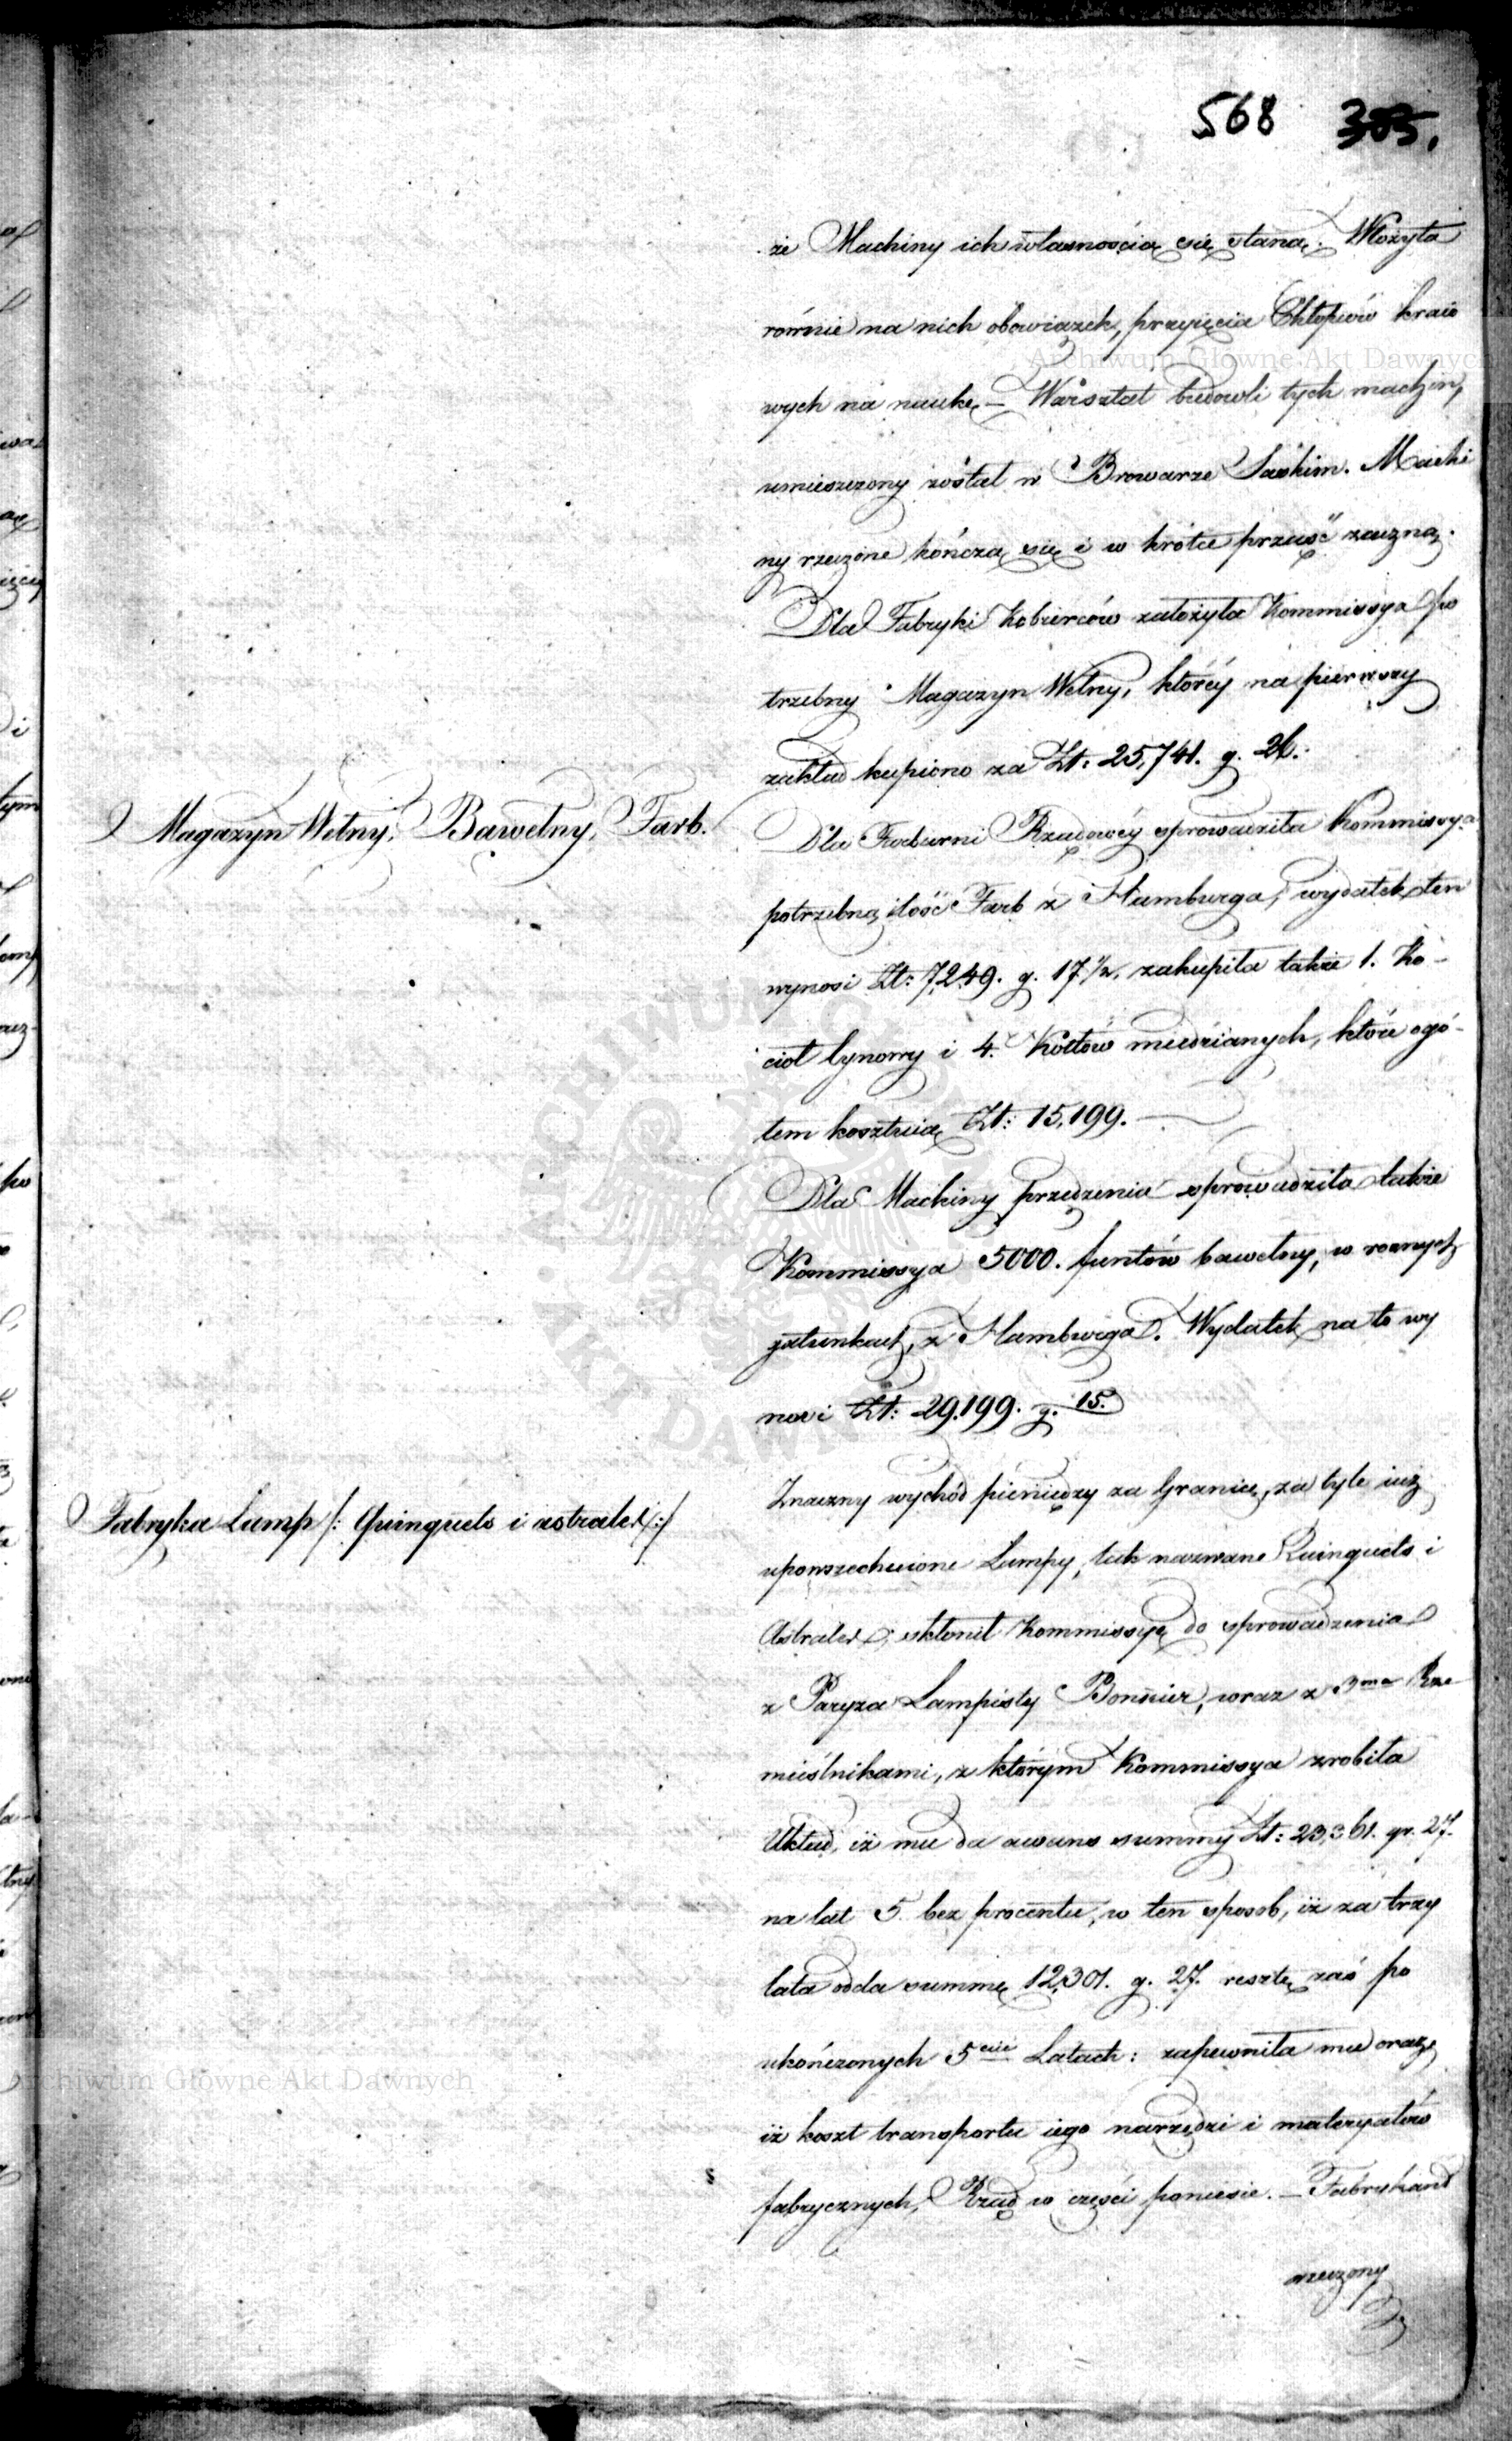 568 303.
że Machiny ich własnością się staną. Włożyła
równie na nich obowiązek, przyięcia Chłopców kraio
wych na naukę — Warsztat budowli tych machin,
umieszczony został w Browarze Saskim. Machi
ny rzeczone kończą się i w krótce prząść zaczną.
Dla Fabryki Kobierców założyła Kommissya po
trzebny Magazyn Wełny, któréy na pierwszy
zakład kupiono za Zł: 25,741. g. 26.
Magazyn Wełny, Bawełny, Farb.
Dla Farbiarni Rządowéy sprowadziła Kommissya
potrzebną ilość Farb z Hamburga, wydatek ten
wynosi Zł: 7,249. g. 17.½, zakupiła także 1. Ko-
cioł cynowy i 4. Kotłów miedzianych, które ogó-
łem kosztuią Zł: 15,199. —
Dla Machiny przędzenia sprowadziła także
Kommissya 5000. funtów bawełny, w roznych
gatunkach, z Hamburga. Wydatek na to wy
nosi Zł: 29,199. g. 15.
Fabryka Lamp /: Quinquets i astrales :/
Znaczny wychód pieniędzy za Granicę, za tyle iuż
upowszechnione Lampy, tak nazwane Quinquets i
Astrales, skłonił Kommissyę do sprowadzenia
z Paryża Lampisty Bonnier, wraz z 3ma Rze
mieślnikami, z którym Kommissya zrobiła
Układ, iż mu da awans summy Zł: 23,361. gr. 27.
na lat 5 bez procentu, w ten sposob, iż za trzy
lata odda summę 12,301. g. 27. resztę zaś po
ukończonych 5ciu Latach: zapewniła mu oraz,
iż koszt transportu iego narzędzi i materyałów
fabrycznych, Rząd w części poniesie. — Fabrykant
rzeczony
Archiwum Główne Akt Dawnych
Archiwum Główne Akt Dawnych